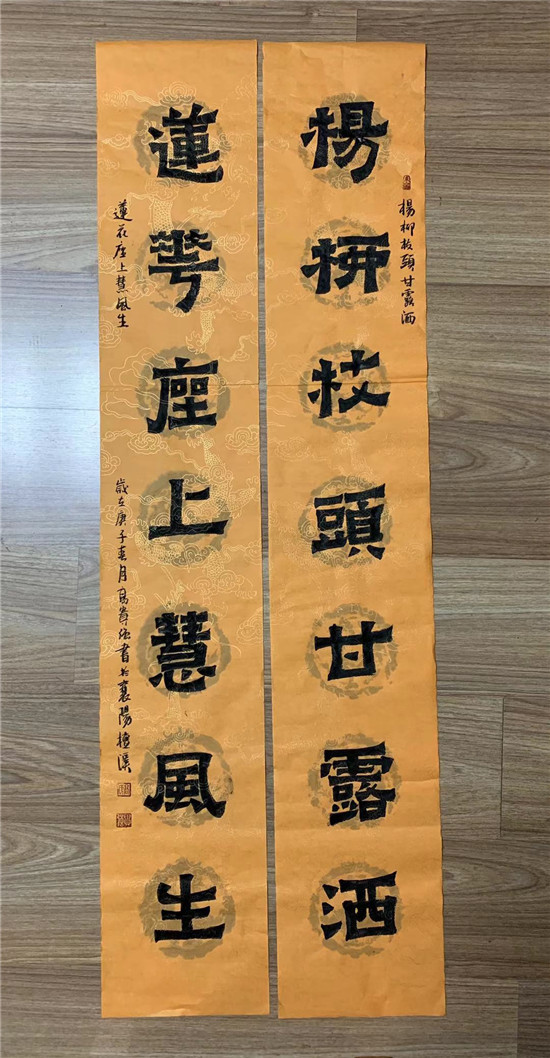 楊柳枝頭甘露洒
楊柳枝頭甘露洒
蓮花座上慧風生
蓮花座上慧風生
歲在庚子春月高尊強書於襄陽檀溪